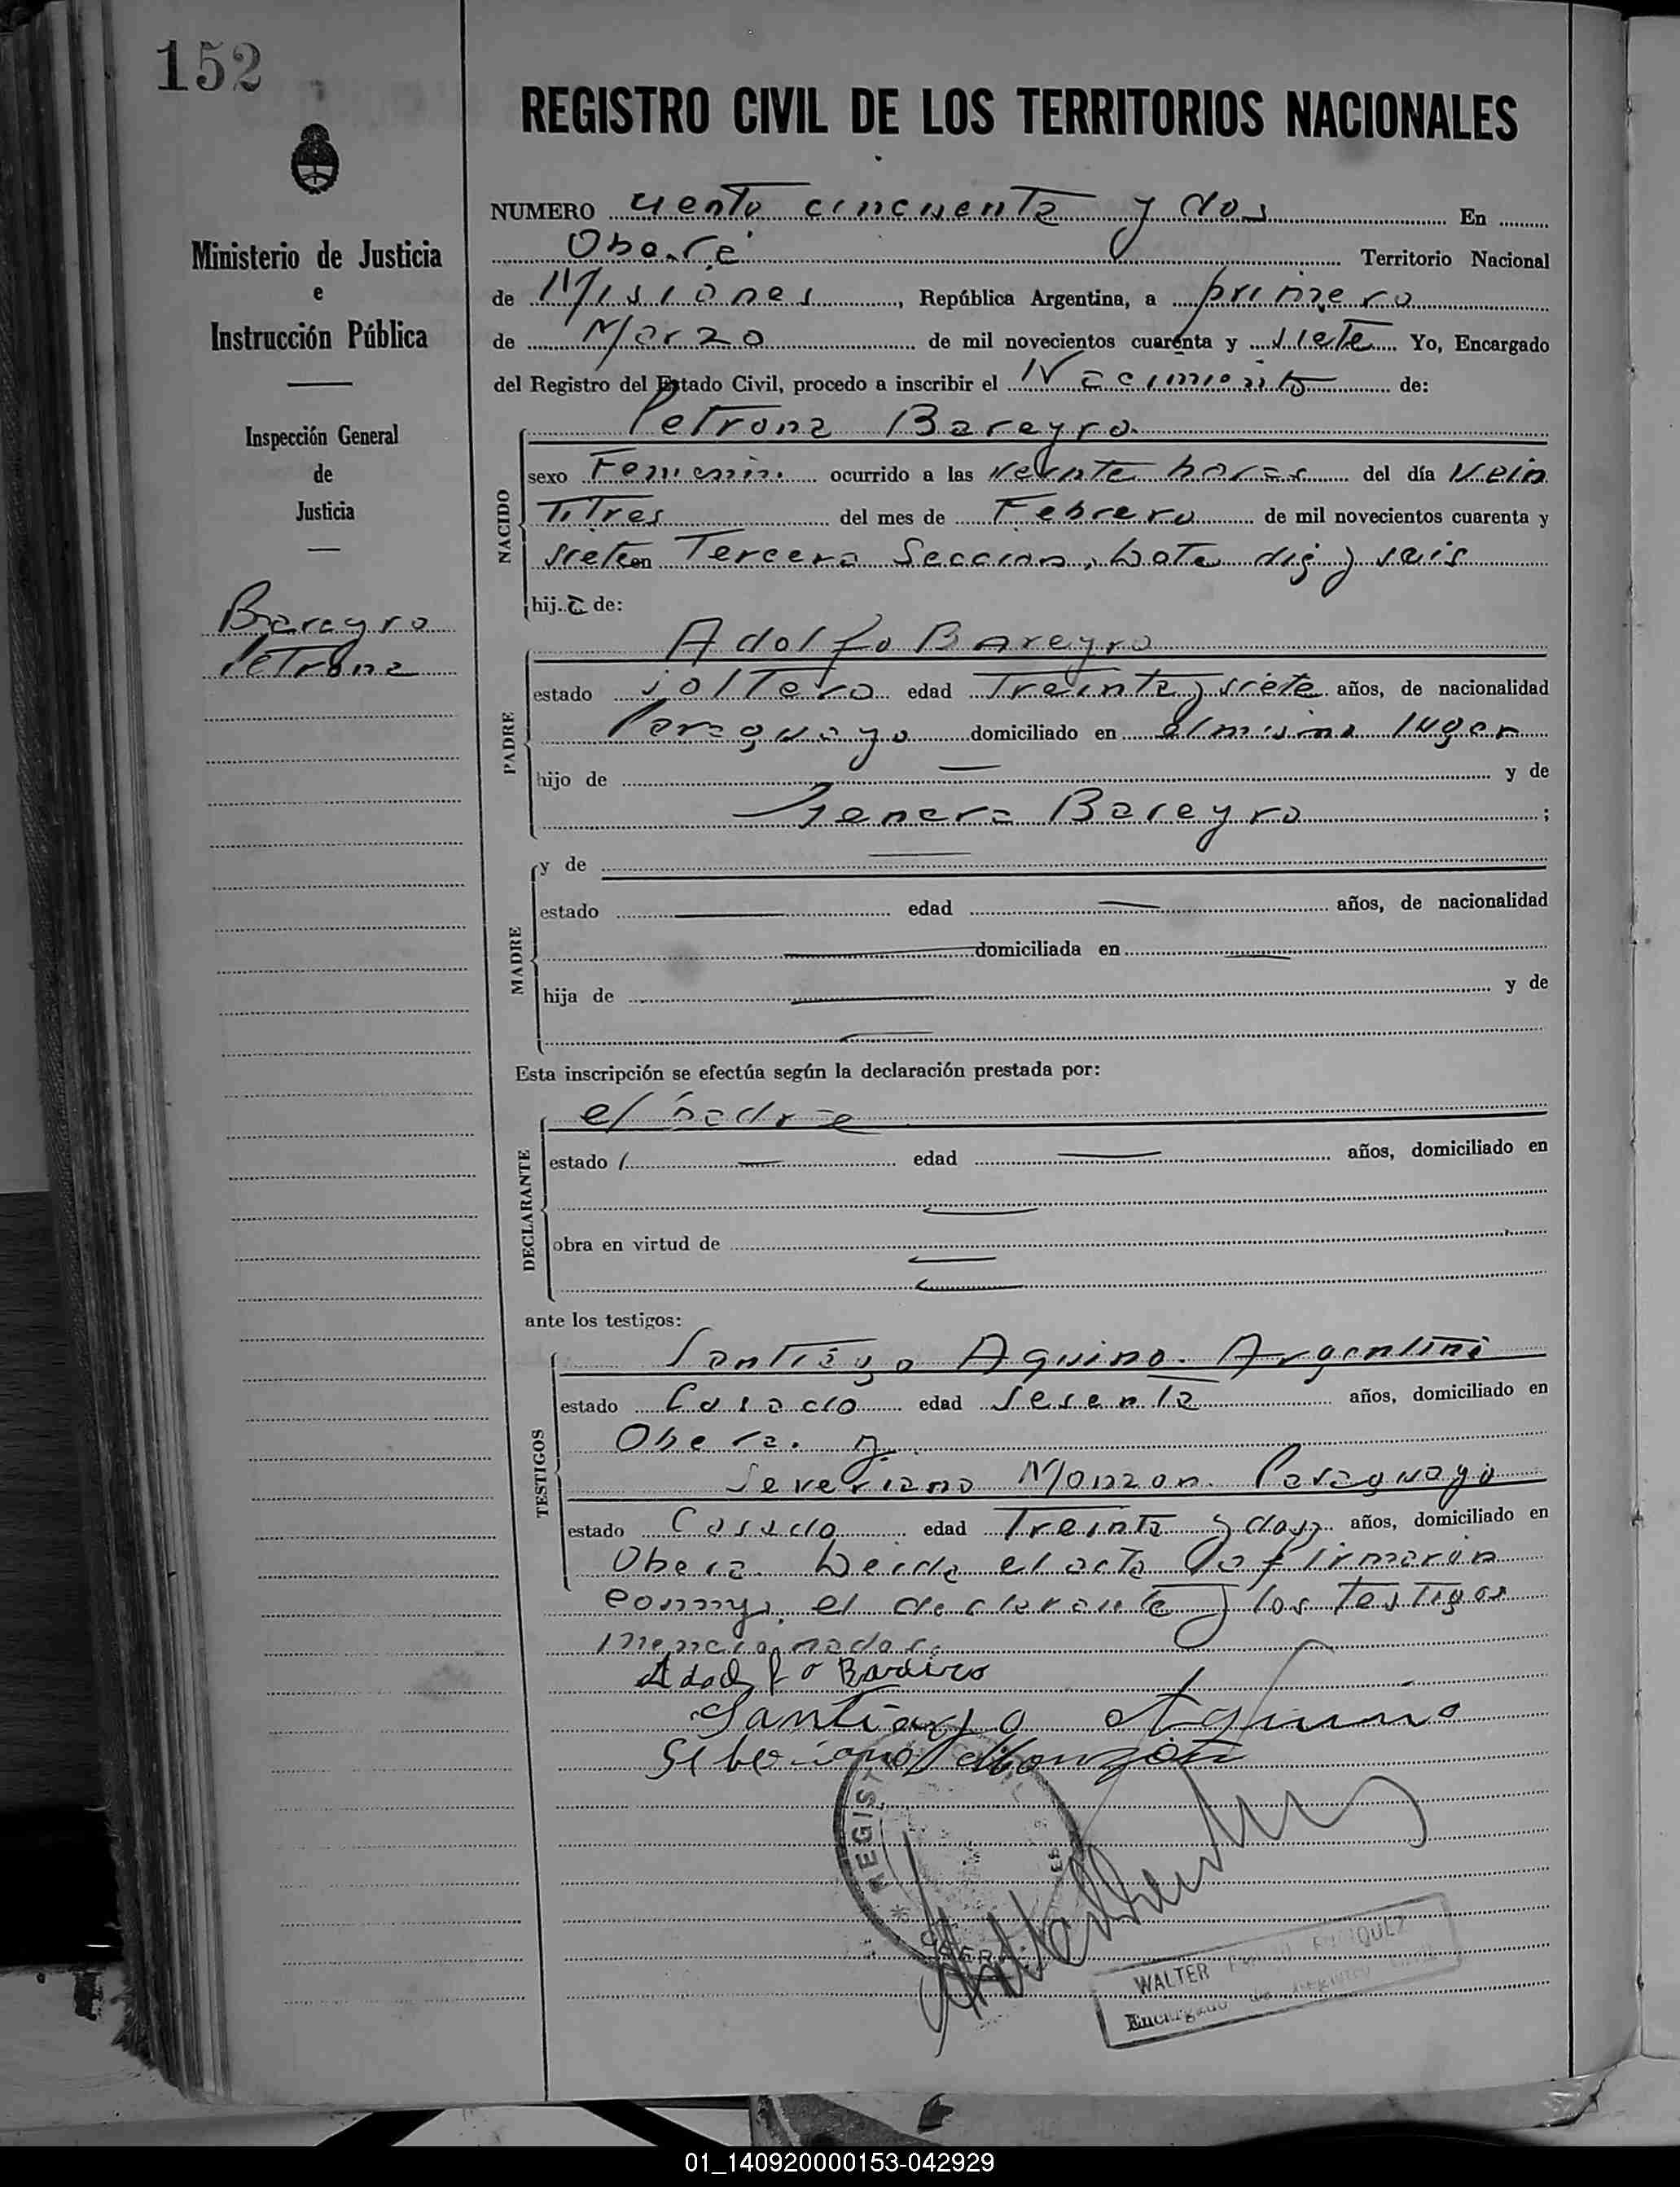 152
REGISTRO CIVIL DE LOS TERRITORIOS NACIONALES
Ministerio de Justicia
e
Instrucción Pública
Inspección General
de
Justicia
Bareyro
Petrona
NUMERO ciento cincuenta y dos En
Oberá Territorio Nacional
de Misiones, República Argentina, a primero
de Marzo de mil novecientos cuarenta y siete Yo, Encargado
del Registro del Estado Civil, procedo a inscribir el Nacimiento de:
Petrona Bareyro
NACIDO
sexo Femenin. ocurrido a las veinte horas del día vein
titres del mes de Febrero de mil novecientos cuarenta y
siete en Tercera Seccion, Lote dig y seis
hij a de:
PADRE
Adolfo Bareyro
estado soltero edad treinta y siete años, de nacionalidad
Paraguayo domiciliado en el mismo lugar
hijo de — y de
Genera Bareyro ;
MADRE
y de —
estado — edad — años, de nacionalidad
— domiciliada en —
hija de — y de
—
Esta inscripción se efectúa según la declaración prestada por:
DECLARANTE
el padre
estado — edad — años, domiciliado en
—
obra en virtud de —
—
ante los testigos:
TESTIGOS
Santiago Aquino. Argentino
estado Casado edad Sesenta años, domiciliado en
Obera. y
Severiano Monzon. Paraguayo
estado Casado edad Treinta y dos años, domiciliado en
Obera. Leida el acta la firmaron
conmigo, el declarante y los testigos
mencionados.
Adolfo Bareiro
Santiago Aquino
Siberiano Monzon
REGIST
OBERA
WALTER
Encargado de Registro
01_140920000153-042929